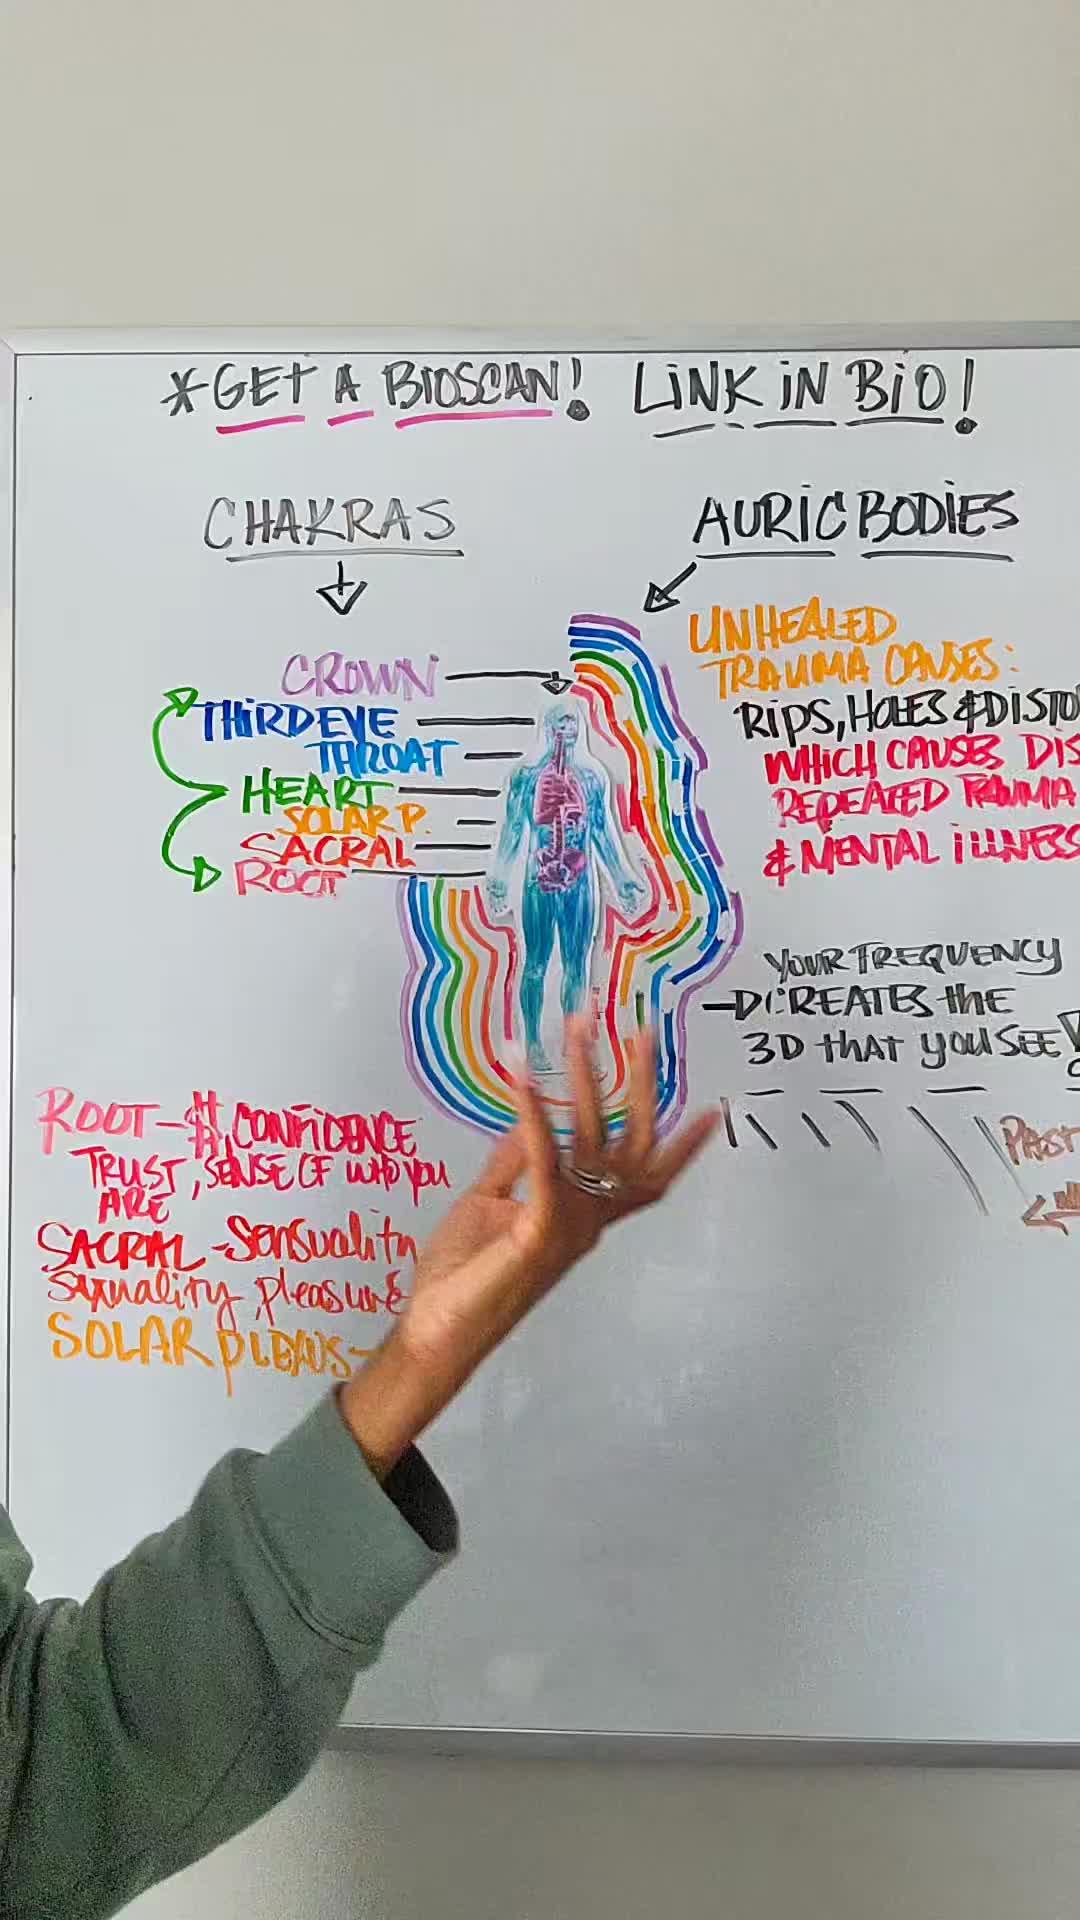 *GET A BIOSCAN! LINK IN BIO!
CHAKRAS
CROWN
THIRD EYE
THROAT
HEART
SOLAR P.
SACRAL
ROOT
AURIC BODIES
UNHEALED
TRAUMA CAUSES:
RIPS, HOLES &
WHICH CAUSES
REPEATED TRAUMA
& MENTAL ILLNESS
YOUR FREQUENCY
CREATES the
3D thAt you SEE
PAST
ROOT-$, CONFIDENCE
TRUST, SENSE OF WHO YOU
ARE
SACRAL-Sensuality
sexuality, pleasure
SOLAR PLEXUS-